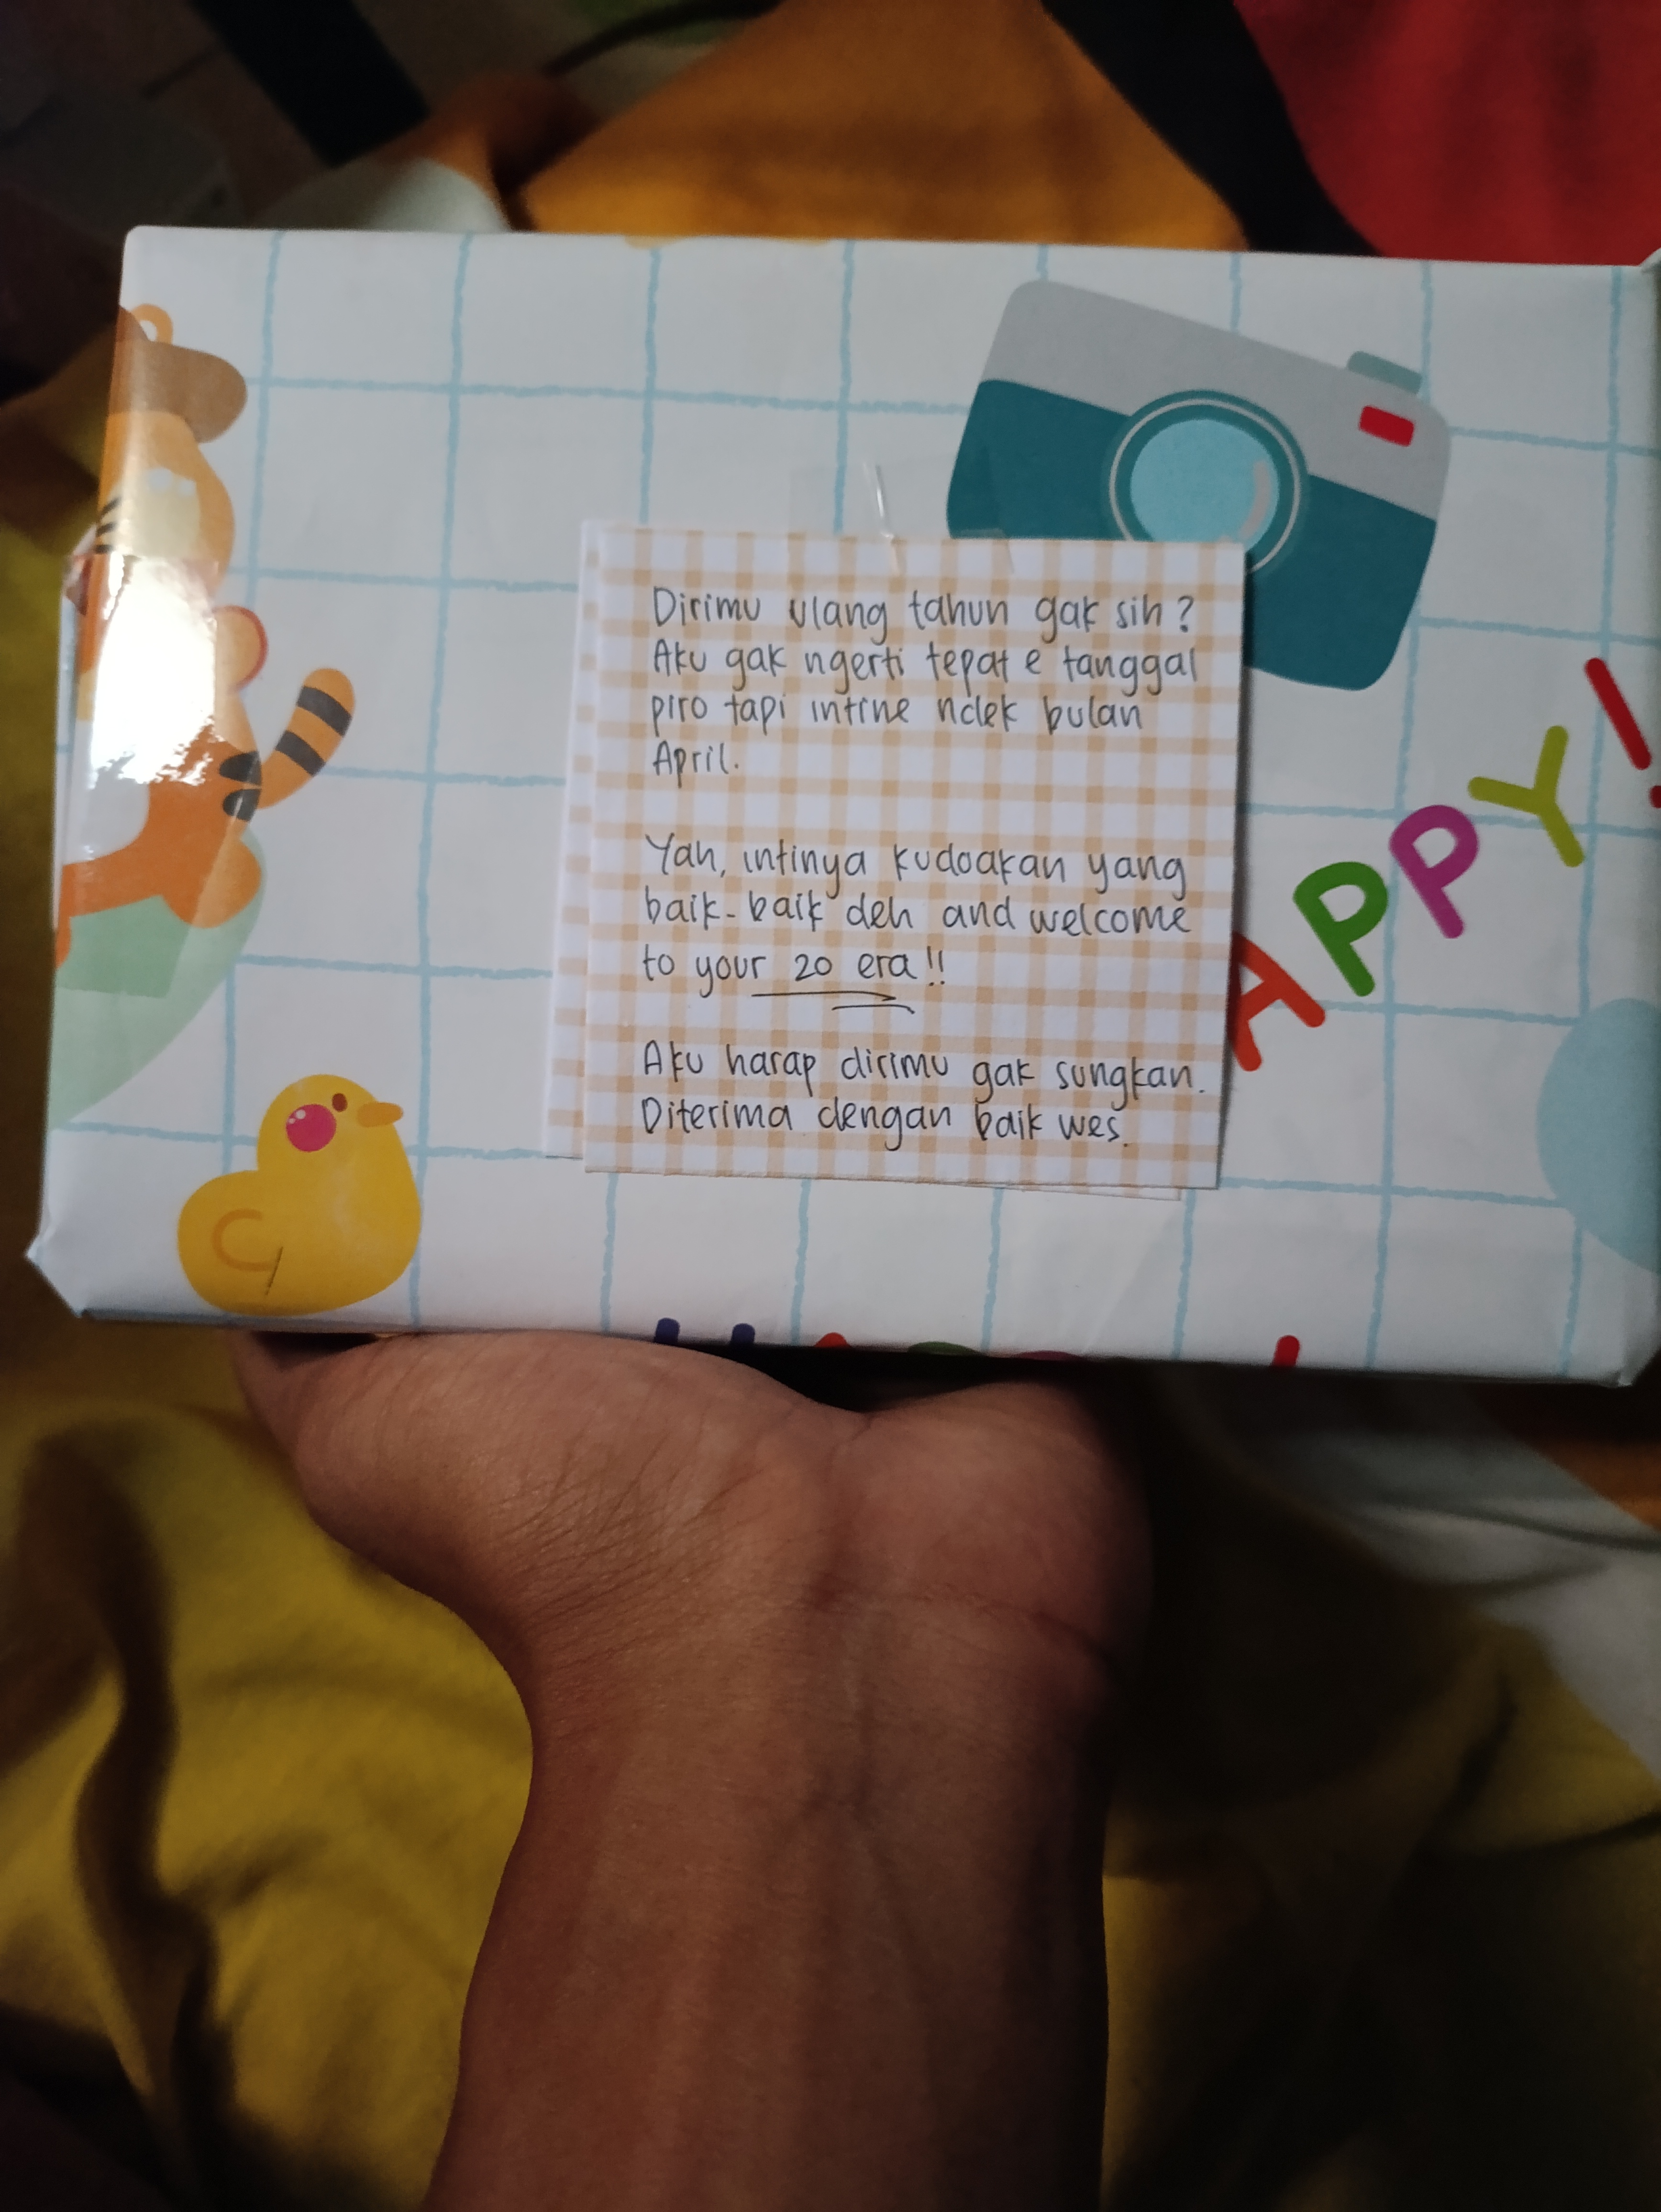 Dirimu ulang tahun gak sih?
Aku gak ngerti tepat e tanggal
piro tapi intine ndek bulan
April.
Yah, intinya kudoakan yang
baik-baik deh and welcome
to your 20 era!!
Aku harap dirimu gak sungkan.
Diterima dengan baik wes.
APPY!